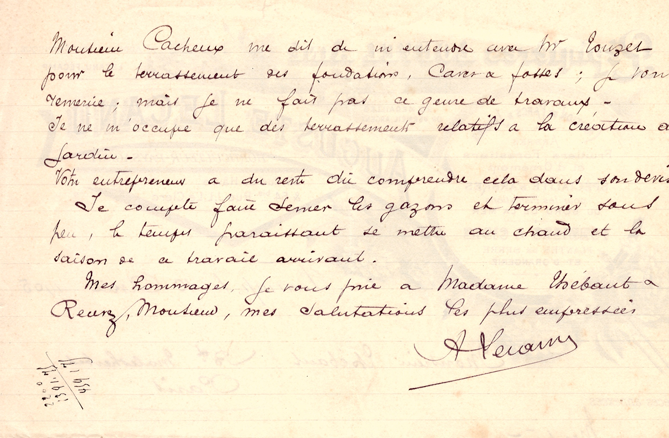 Monsieur Cacheux me dit de m'entendre avec Mr Touzet
pour le terrassement des fondations, Caves & fosses ; je vous
remercie ; mais je ne fait pas ce genre de travaux -
Je ne m'occupe que des terrassements relatifs a la création de
Jardin -
Votre entrepreneur a du reste dû comprendre cela dans son devis
Je compte faire semer les gazons et terminer sous
peu, le temps paraissant se mettre au chaud et la
saison de ce travail arrivant.
Mes hommages, je vous prie a Madame Thébault &
Recevez, Monsieur, mes salutations les plus empressées